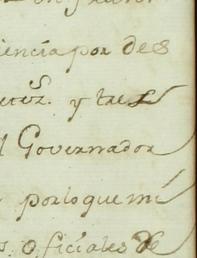 iencia por des
y tres
l Governador
porloque mi
s. oficiales de